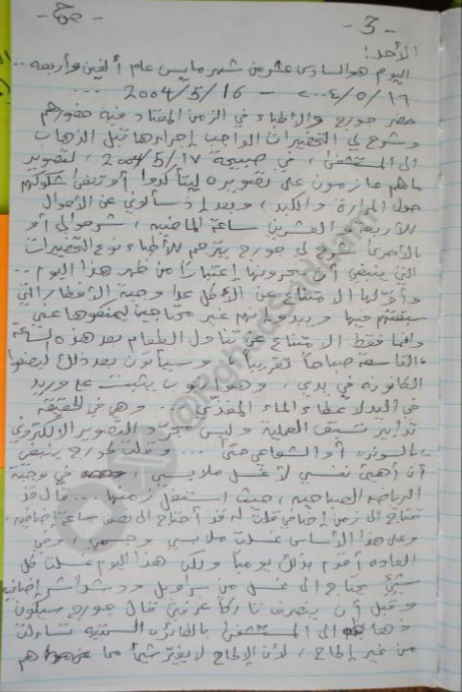 - 3 -
الأحد:
اليوم هو السادس عشر من شهر مايس عام ألفين وأربعة ...
٢٠٠٤/٥/١٦ - 2004/5/16 ...
حضر جورج والأطباء في الزمن المعتاد فيه حضورهم
وشرح لي التحضيرات الواجب إجراءها قبل الذهاب
الى المستشفى، في صبيحة 2004/5/17، لتصوير
ما هم عازمون على تصويره ليتأكدوا أو تنفى شكوكهم
حول المرارة والكبد، وبعد إذ سألوني عن الأحوال
للأربعة والعشرين ساعة الماضية، شرحوا لي أو
بالأحرى شرح لي جورج يترجم للأطباء نوع التحضيرات
التي ينبغي أن يجرونها إعتباراً من ظهر هذا اليوم ..
وأولها الامتناع عن الأكل عدا وجبة الأفطار التي
سبقتهم فيها ويبدو انهم غير محتاجين ليمنعوها عني
وانما فقط الامتناع عن تناول الطعام بعد هذه الساعة
التاسعة صباحاً تقريباً، وسيأتون بعد ذلك ليضعوا
الكانونة في يدي، وهو انبوب يثبت على وريد
في اليد لإعطاء الماء المغذي ... وهي في الحقيقة
تدابير تسبق العملية وليس مجرد التصوير الالكتروني
بالسونر، أو الشعاعي حتى ... وقلت لجورج ينبغي
أن أهيئ نفسي لأغسل ملابسي في وجبة
الرياضة الصباحية، حيث استغل زمنها ... قال قد
تحتاج الى زمن إضافي قلت له قد أحتاج الى نصف ساعة إضافية،
وعلى هذا الأساس غسلت ملابسي وجسمي، وفي
العادة أقوم بذلك يومياً ولكن هذا اليوم غسلت كل
شيء يحتاج الى غسل من سراويل ودشداش إضافية
وقبل أن ينصرف تاركاً غرفتي قال جورج سيكون
ذهابك الى المستشفى بالطائرة السمتية تساءلت
من غير إلحاح، لأن الإلحاح لا يغير شيئاً مما هم